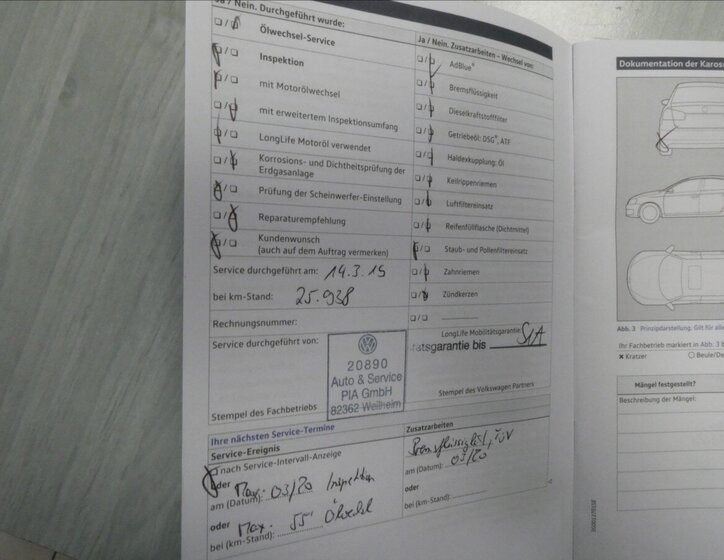 Ja / Nein. Durchgeführt wurde:
Ölwechsel-Service
Inspektion
mit Motorölwechsel
mit erweitertem Inspektionsumfang
LongLife Motoröl verwendet
Korrosions- und Dichtheitsprüfung der
Erdgasanlage
Prüfung der Scheinwerfer-Einstellung
Reparaturempfehlung
Kundenwunsch
(auch auf dem Auftrag vermerken)
Service durchgeführt am: 19.3.19
bei km-Stand: 25.938
Rechnungsnummer:
Service durchgeführt von:
20890
Auto & Service
PIA GmbH
82362 Weilheim
Stempel des Fachbetriebs
Ja / Nein. Zusatzarbeiten – Wechsel von:
AdBlue®
Bremsflüssigkeit
Dieselkraftstofffilter
Getriebeöl: DSG®, ATF
Haldexkupplung: Öl
Keilrippenriemen
Luftfiltereinsatz
Reifenfüllflasche (Dichtmittel)
Staub- und Pollenfiltereinsatz
Zahnriemen
Zündkerzen
LongLife Mobilitätsgarantie:
tätsgarantie bis SIA
Stempel des Volkswagen Partners
Ihre nächsten Service-Termine
Service-Ereignis
nach Service-Intervall-Anzeige
oder
am (Datum): Max. 03/20 Inspektion
oder
bei (km-Stand): Max. 55' Ölwechsel
Zusatzarbeiten
Bremsflüssigkeit, TÜV
am (Datum): 03/20
oder
bei (km-Stand):
Dokumentation der Kaross
Abb. 3 Prinzipdarstellung. Gilt für alle
Ihr Fachbetrieb markiert in Abb. 3 b
x Kratzer
Beule/De
Mängel festgestellt?
Beschreibung der Mängel: